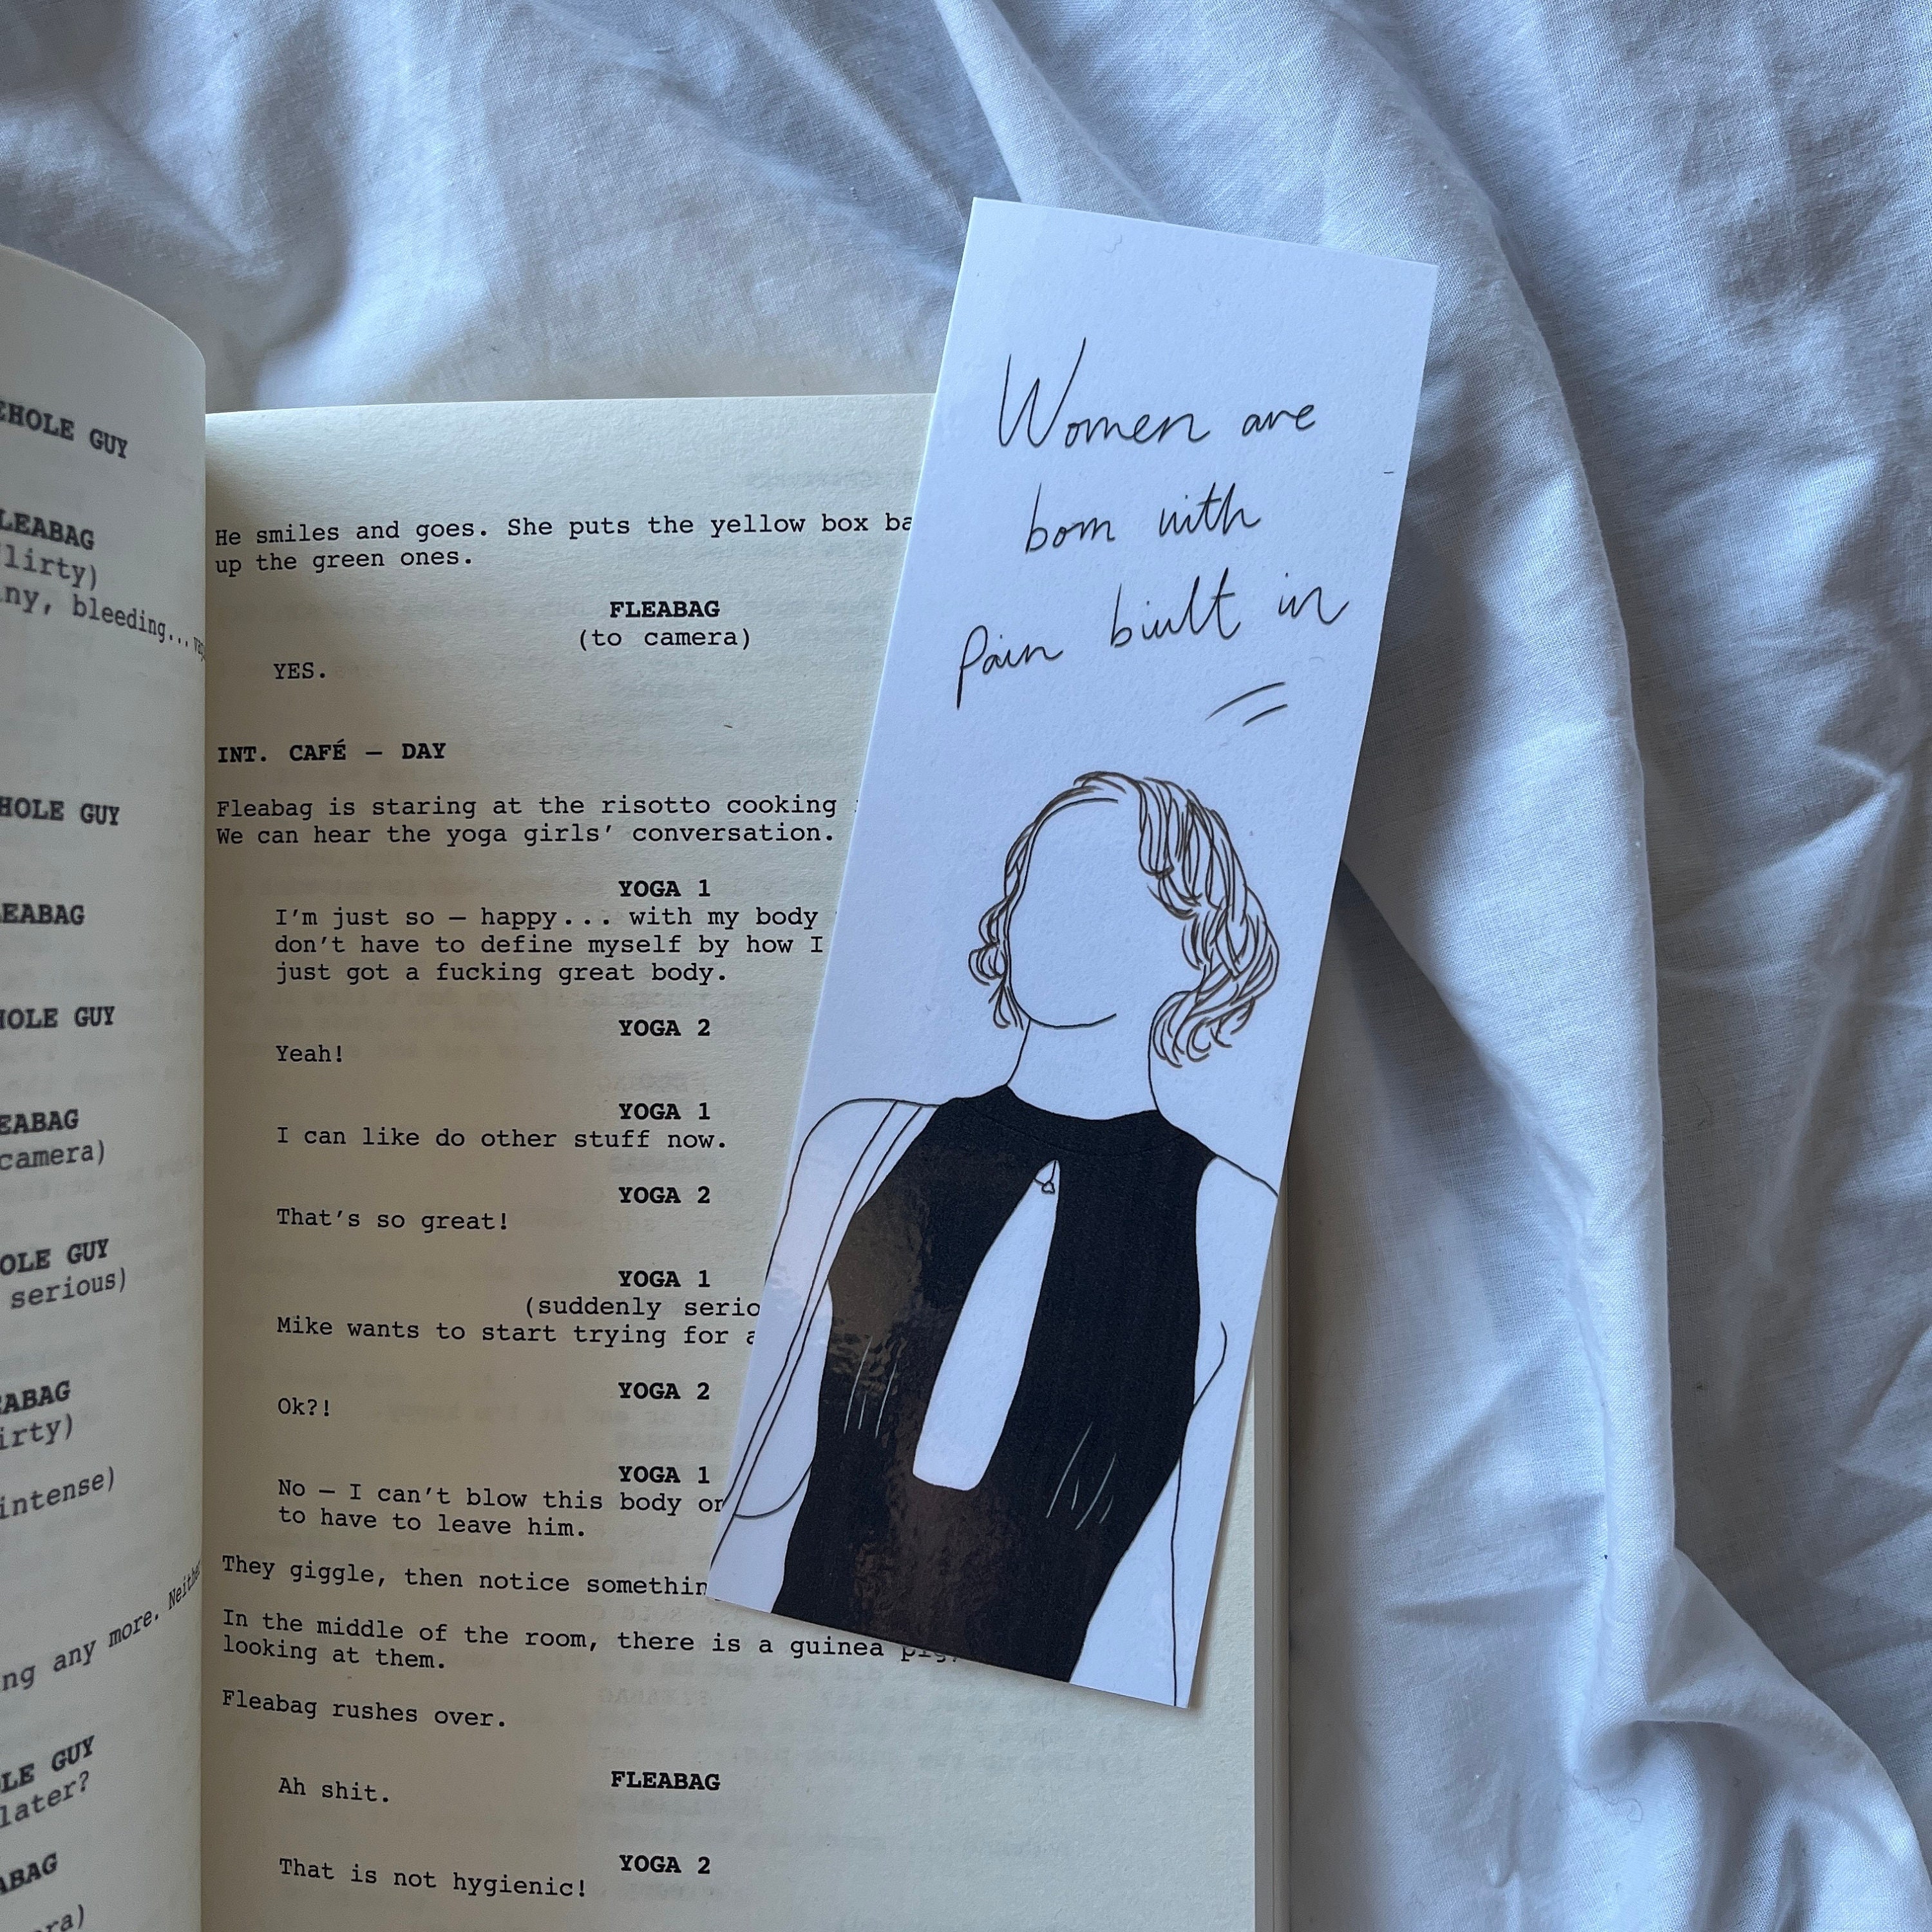 HOLE GUY
FLEABAG
ny, bleeding...
HOLE GUY
FLEABAG
HOLE GUY
FLEABAG
camera)
HOLE GUY
serious)
FLEABAG
intense)
ng any more. Neither
GUY
later?
He smiles and goes. She puts the yellow box
up the green ones.
FLEABAG
(to camera)
YES.
INT. CAFÉ – DAY
Fleabag is staring at the risotto cooking
We can hear the yoga girls' conversation.
YOGA 1
I'm just so – happy... with my body
don't have to define myself by how I
just got a fucking great body.
YOGA 2
Yeah!
YOGA 1
I can like do other stuff now.
YOGA 2
That's so great!
YOGA 1
(suddenly serio
Mike wants to start trying for a
YOGA 2
Ok?!
YOGA 1
No – I can't blow this body or
to have to leave him.
They giggle, then notice somethin
In the middle of the room, there is a guinea pig,
looking at them.
Fleabag rushes over.
FLEABAG
Ah shit.
YOGA 2
That is not hygienic!
Women are
born with
pain built in